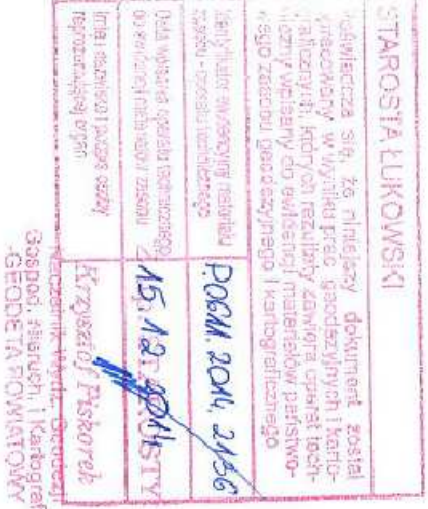 STAROSTA ŁUKOWSKI
Poświadcza się, że niniejszy dokument został
opracowany w wyniku prac geodezyjnych i karto-
graficznych, których rezultaty zawiera operat tech-
niczny wpisany do ewidencji materiałów państwo-
wego zasobu geodezyjnego i kartograficznego
Identyfikator ewidencyjny materiału
zasobu - operatu technicznego
P.0611.2014.2156
Data wpisania operatu technicznego
do ewidencji materiałów zasobu
15.12.2014
Z up. STAROSTY
Imię i nazwisko i podpis osoby
reprezentującej organ
Krzysztof Piskorek
Naczelnik Wydz. Geodezji
Gospod. Nieruch. i Kartograf
GEODETA POWIATOWY